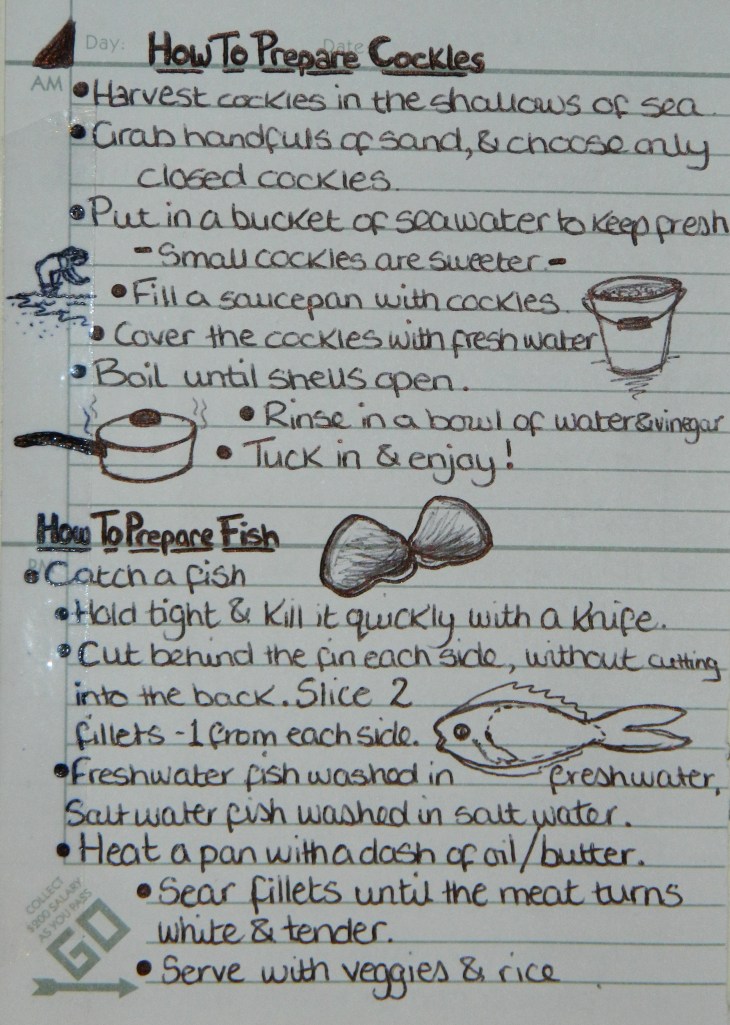 Day:
Date
How To Prepare Cockles
AM
• Harvest cockles in the shallows of sea.
• Grab handfuls of sand, & choose only
closed cockles.
• Put in a bucket of seawater to keep fresh
- Small cockles are sweeter. -
• Fill a saucepan with cockles.
• Cover the cockles with fresh water
• Boil until shells open.
• Rinse in a bowl of water & vinegar
• Tuck in & enjoy!
How To Prepare Fish
• Catch a fish
• Hold tight & kill it quickly with a knife.
• Cut behind the fin each side, without cutting
into the back. Slice 2
fillets - 1 from each side.
• Freshwater fish washed in freshwater,
Saltwater fish washed in salt water.
• Heat a pan with a dash of oil/butter.
• Sear fillets until the meat turns
white & tender.
• Serve with veggies & rice
COLLECT
$200 SALARY
AS YOU PASS
GO